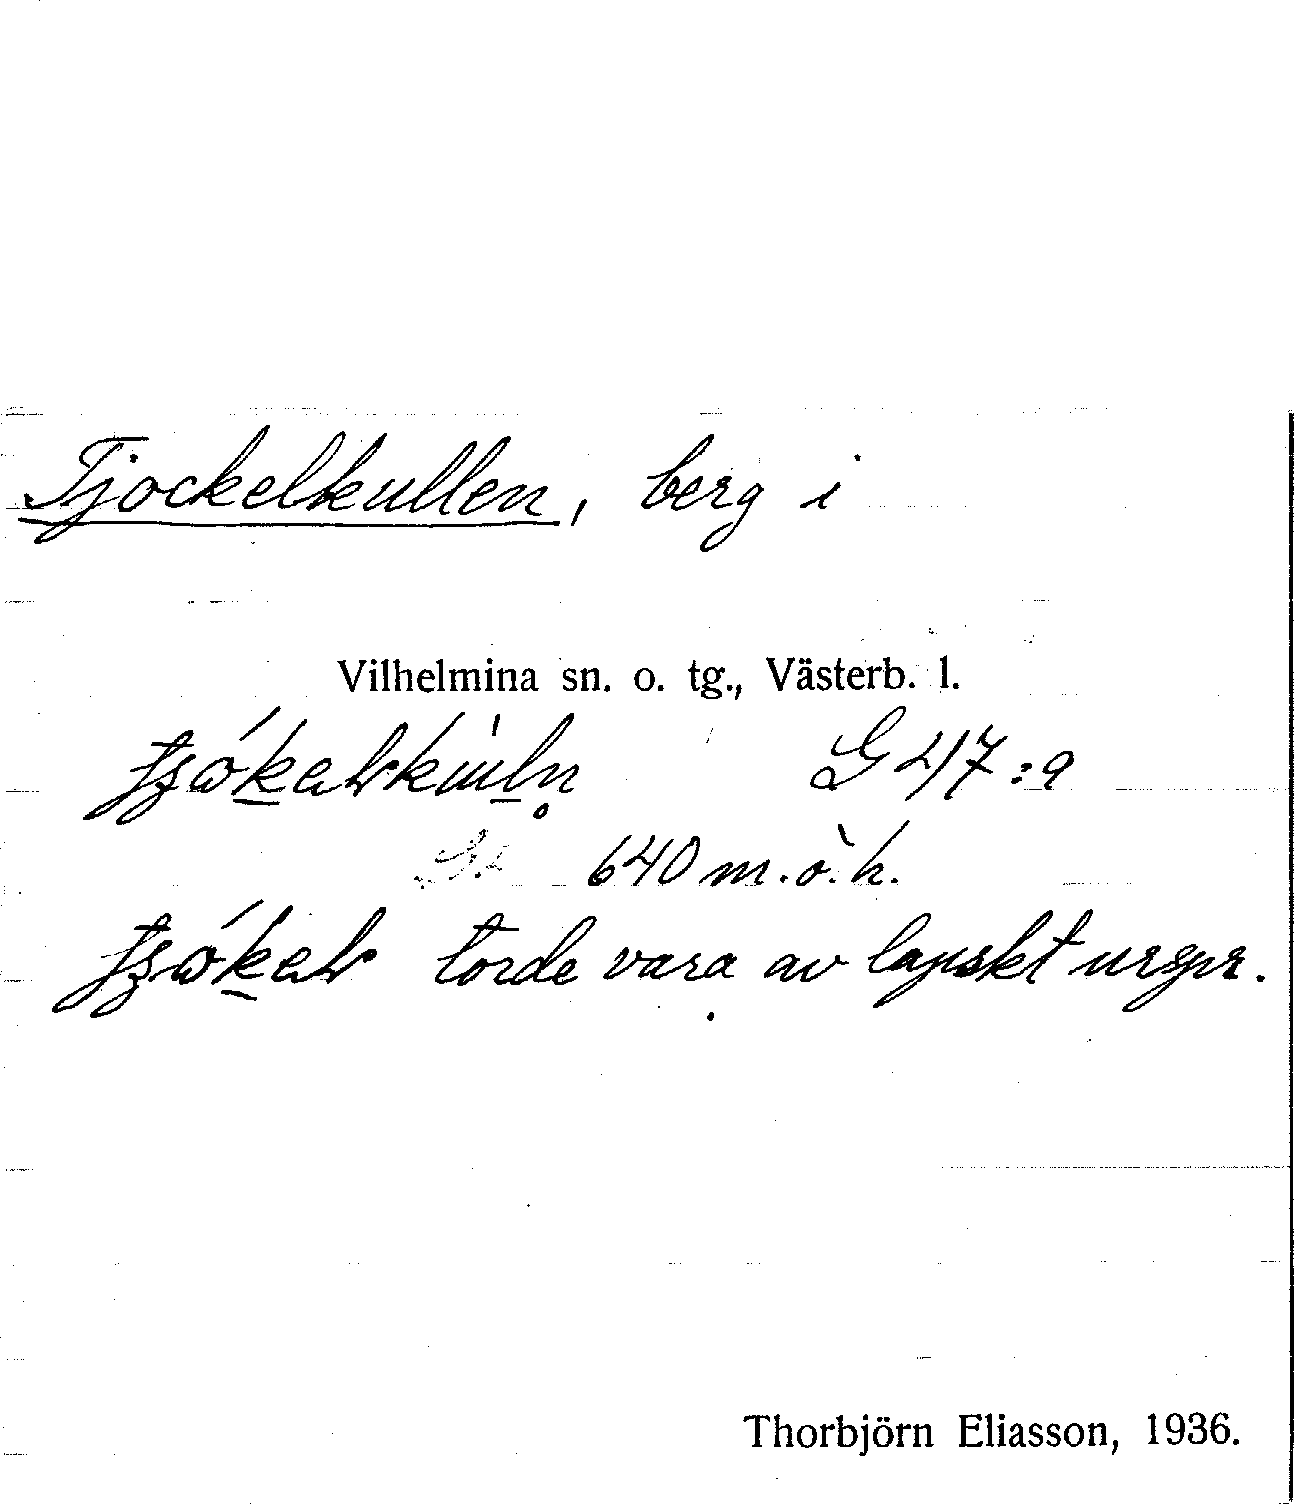 Tjockelkullen, berg i
Vilhelmina sn. o. tg., Västerb. l.
G 47:a
640 m.ö.h.
torde vara av lapskt urspr.
Thorbjörn Eliasson, 1936.